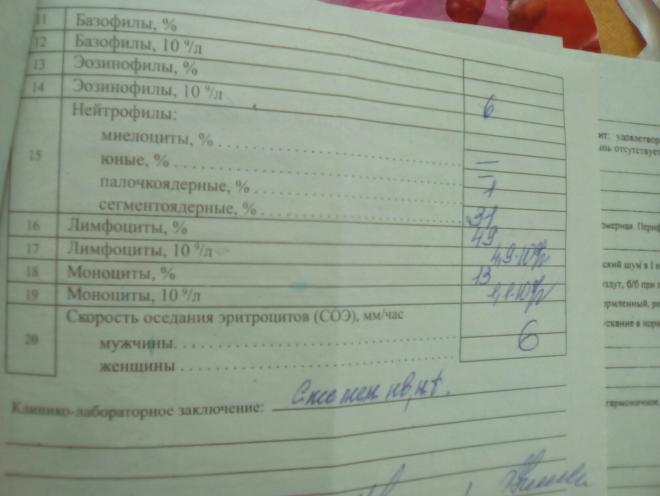 11 Базофилы, %
12 Базофилы, 10 ⁹/л
13 Эозинофилы, %
14 Эозинофилы, 10 ⁹/л 6
15 Нейтрофилы:
миелоциты, % —
юные, % —
палочкоядерные, % 1
сегментоядерные, % 31
16 Лимфоциты, % 49
17 Лимфоциты, 10 ⁹/л 4,9·10⁹/л
18 Моноциты, % 13
19 Моноциты, 10 ⁹/л 1,1·10⁹/л
20 Скорость оседания эритроцитов (СОЭ), мм/час
мужчины 6
женщины
Клинико-лабораторное заключение:
удовлетвор
отсутствует
мерная. Периф
ский шум в I
б/б при
ормленный,
гармоничное,